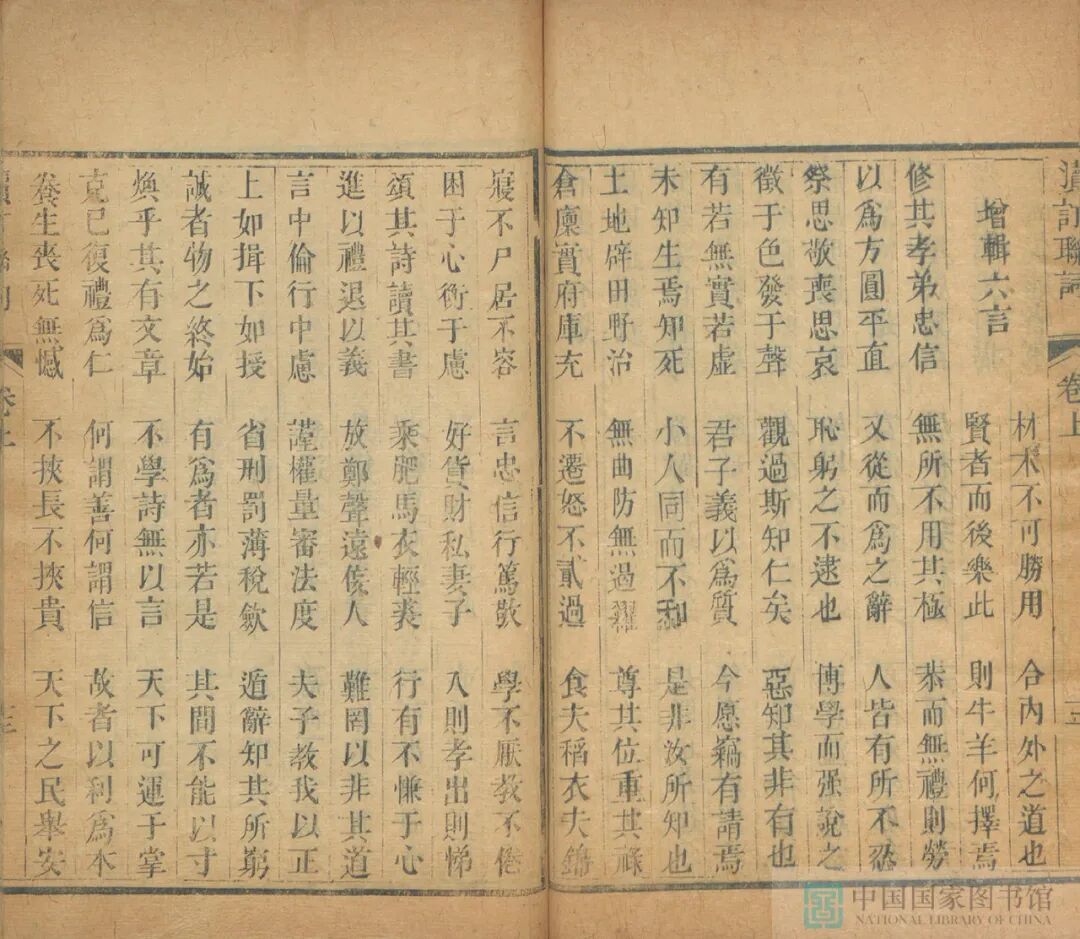 增輯六言
材木不可勝用 合內外之道也
賢者而後樂此 則牛羊何擇焉
修其孝弟忠信 無所不用其極 恭而無禮則勞
以爲方圓平直 又從而爲之辭 人皆有所不忍
祭思敬喪思哀 恥躬之不逮也 博學而强說之
徵于色發于聲 觀過斯知仁矣 惡知其非有也
有若無實若虛 君子義以爲質 今愿竊有請焉
未知生焉知死 小人同而不和 是非汝所知也
土地辟田野治 無曲防無遏糴 尊其位重其祿
倉廩實府庫充 不遷怒不貳過 食夫稻衣夫錦
寢不尸居不容 言忠信行篤敬 學不厭教不倦
困于心衡于慮 好貨財私妻子 入則孝出則悌
頌其詩讀其書 乘肥馬衣輕裘 行有不慊于心
進以禮退以義 放鄭聲遠佞人 難罔以非其道
言中倫行中慮 謹權量審法度 夫子教我以正
上如揖下如授 省刑罰薄稅歛 遁辭知其所窮
誠者物之終始 有爲者亦若是 其間不能以寸
煥乎其有文章 不學詩無以言 天下可運于掌
克己復禮爲仁 何謂善何謂信 故者以利爲本
養生喪死無憾 不挾長不挾貴 天下之民舉安
卷上
中国国家图书馆
NATIONAL LIBRARY OF CHINA